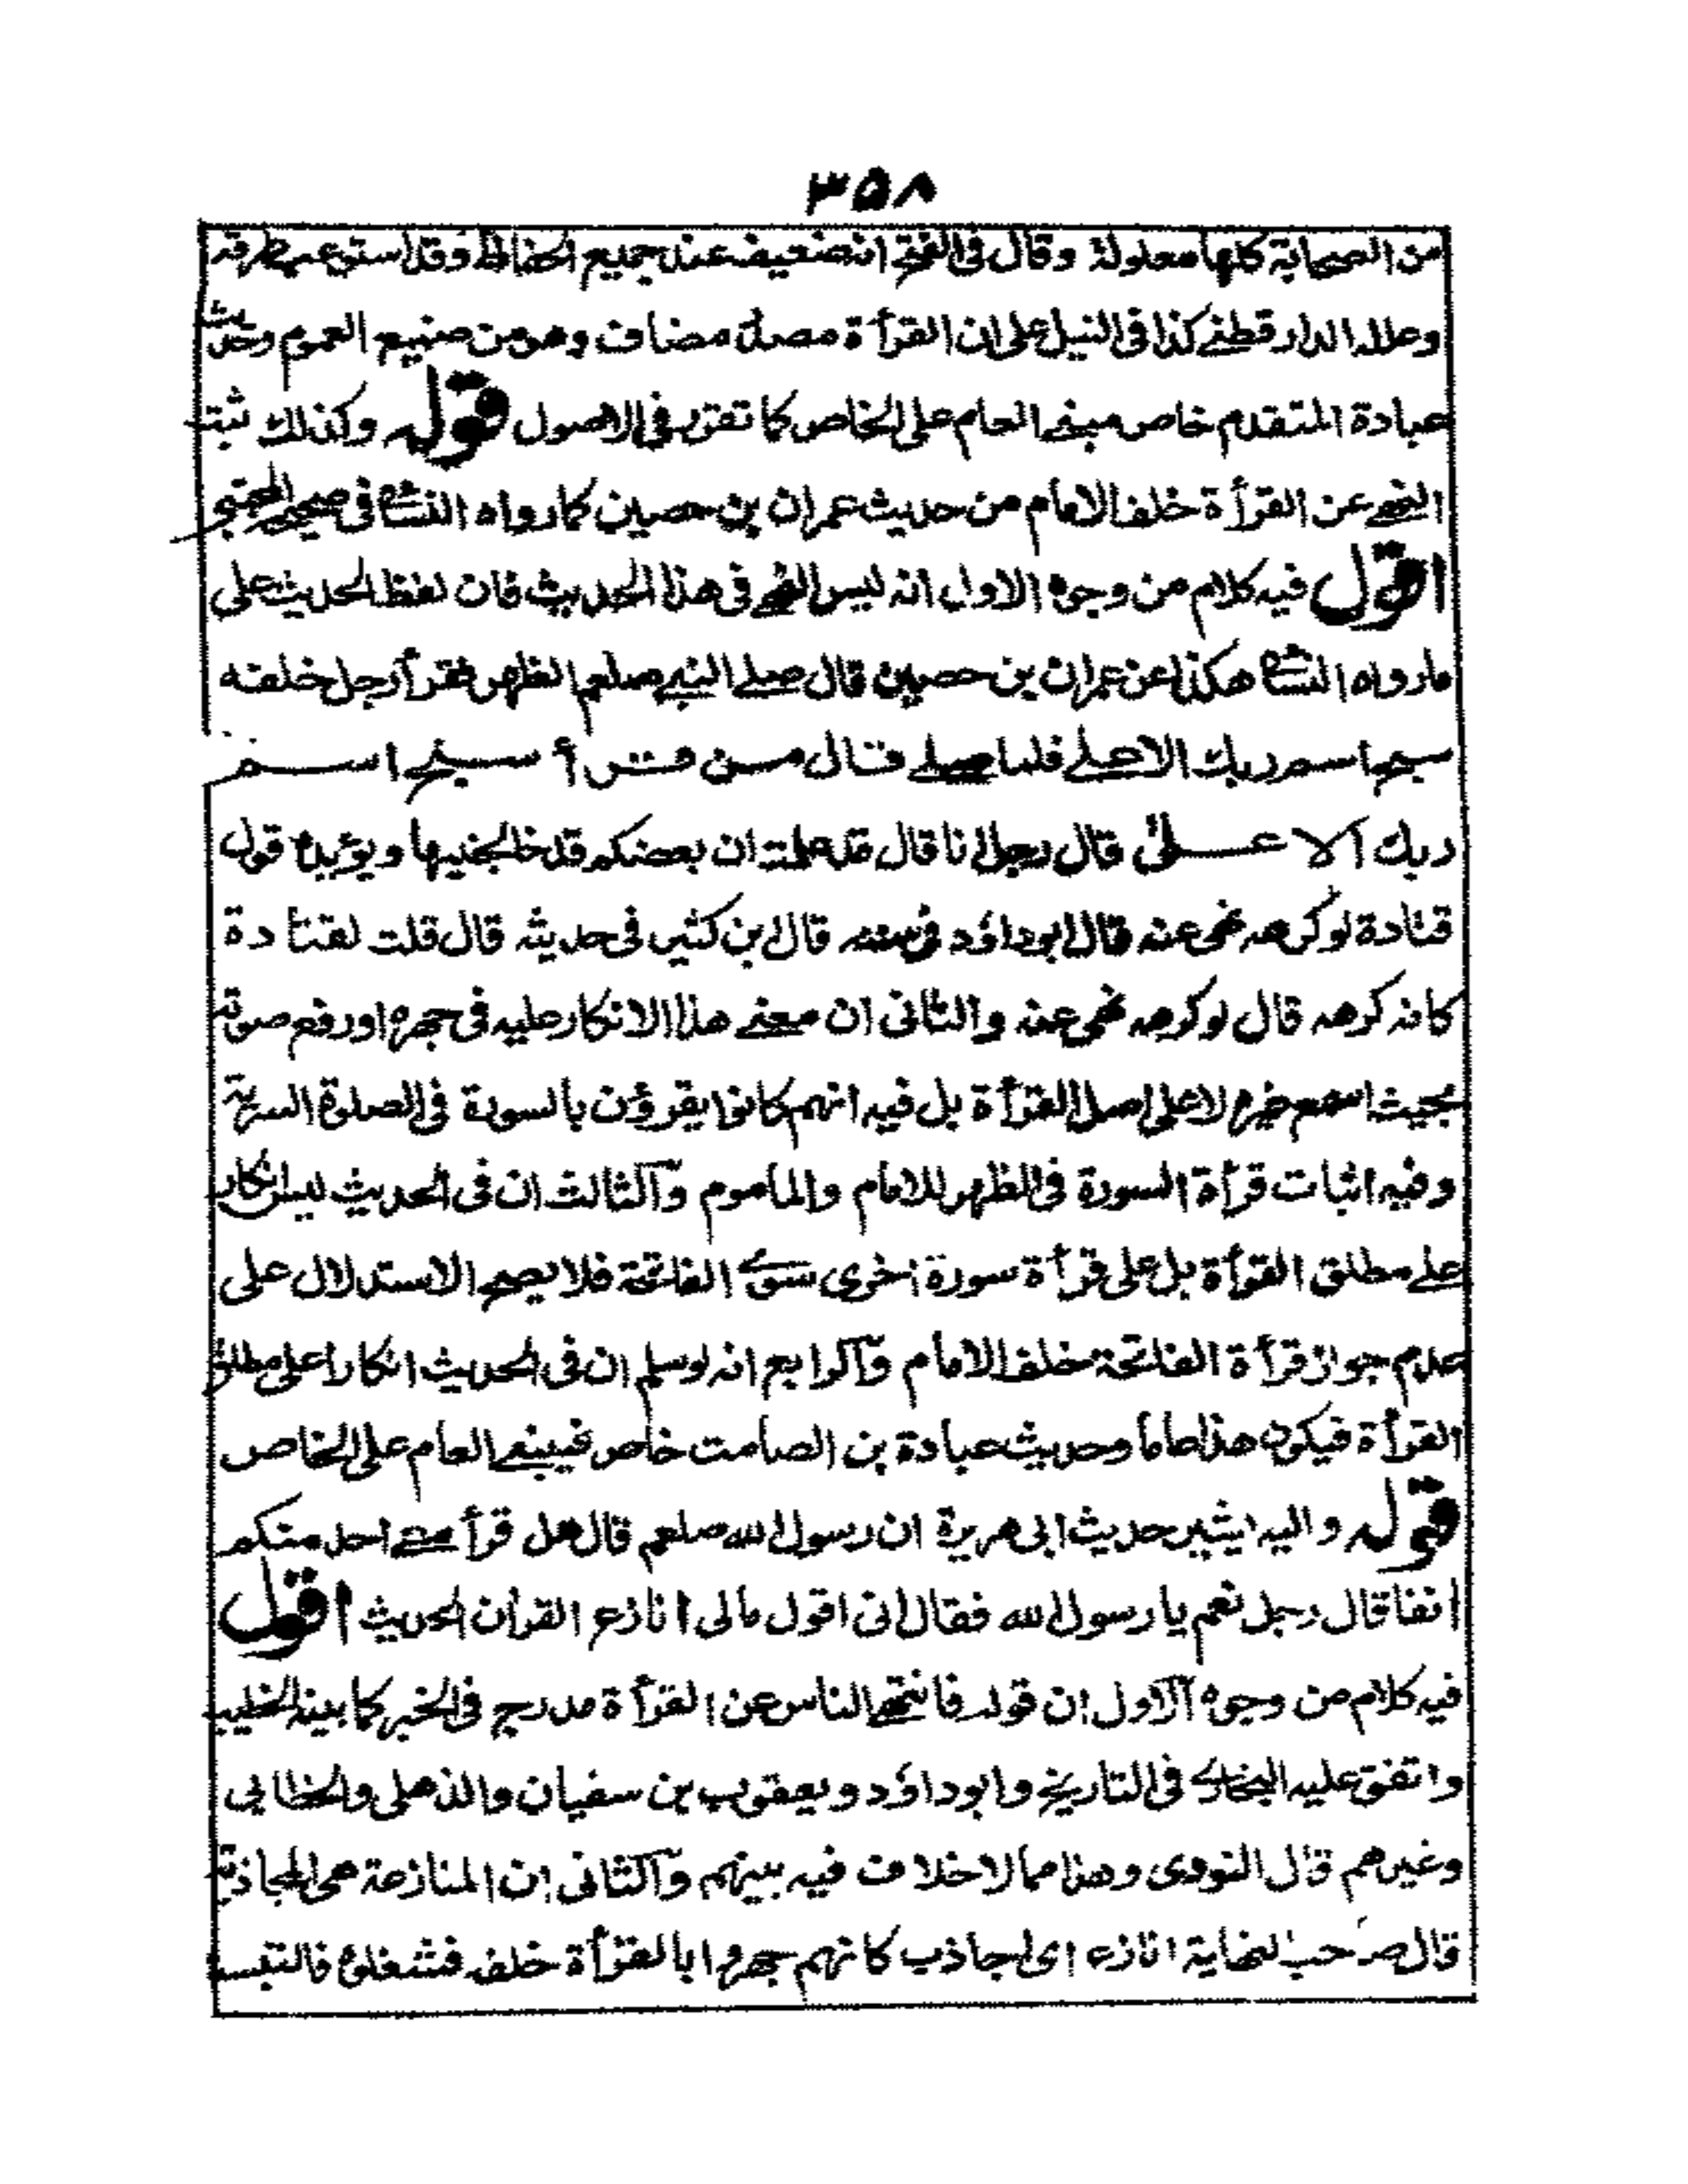 ٣٥٨
من الصحابة كلها معلولة وقال في الفتح انه ضعيف عند جميع الحفاظ وقد استوعب طرقه
وعلله الدارقطني كذا في النيل على ان القرأة مصدر مضاف وهو من صنيع العموم وحديث
عبادة المتقدم خاص مبني العام على الخاص كما تقرر في الاصول قوله وكذلك ثبت
النهي عن القرأة خلف الامام من حديث عمران بن حصين كما رواه النسائي في صحيحه المجتبى
اقول فيه كلام من وجوه الاول انه ليس النهي في هذا الحديث فان لفظ الحديث على
ما رواه النسائي هكذا عن عمران بن حصين قال صلى النبي صلعم الظهر فقرأ رجل خلفه
سبح اسم ربك الاعلى فلما صلى قال من قرأ سبح اسم
ربك الاعلى قال رجل انا قال قد علمت ان بعضكم قد خالجنيها ويؤيده قول
قتادة لو كرهه نهى عنه قال ابو داؤد في سننه قال ابن كثير في حديثه قال قلت لقتادة
كانه كرهه قال لو كرهه نهى عنه والثاني ان معنى هذا الانكار عليه في جهره او رفع صوته
بحيث اسمع غيره لا على اصل القرأة بل فيه انهم كانوا يقرؤن بالسورة في الصلوة السرية
وفيه اثبات قرأة السورة في الظهر للامام والماموم والثالث ان في الحديث ليس انكار
على مطلق القرأة بل على قرأة سورة اخرى سوى الفاتحة فلا يصح الاستدلال على
عدم جواز قرأة الفاتحة خلف الامام والرابع انه لو سلم ان في الحديث انكارا على مطلق
القرأة فيكون هذا عاما وحديث عبادة بن الصامت خاص فيبنى العام على الخاص
قوله واليه ايشير حديث ابى هريرة ان رسول الله صلعم قال هل قرأ معى احد منكم
انفا قال رجل نعم يا رسول الله فقال انى اقول مالى انازع القران الحديث اقول
فيه كلام من وجوه الاول ان قوله فانتهى الناس عن القرأة مدرج في الخبر كما بينه الخطيب
واتفق عليه البخارى في التاريخ وابو داؤد ويعقوب بن سفيان والذهلى والخطابى
وغيرهم قال النووى وهذا مما لا خلاف فيه بينهم والثانى ان المنازعة هى المجاذبة
قال صاحب النهاية انازع اى اجاذب كانهم جهروا بالقرأة خلفه فشغلوه فالتبست